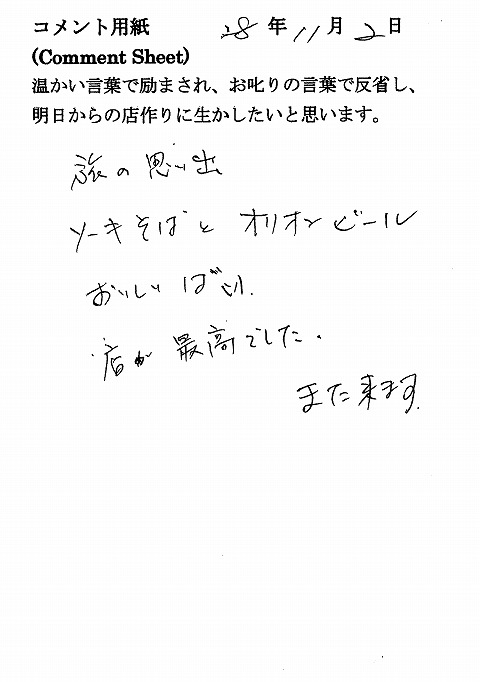 コメント用紙 28年11月2日
(Comment Sheet)
温かい言葉で励まされ、お叱りの言葉で反省し、
明日からの店作りに生かしたいと思います。
旅の思い出
ソーキそばと オリオンビール
おいしい
店が 最高でした。
また来ます